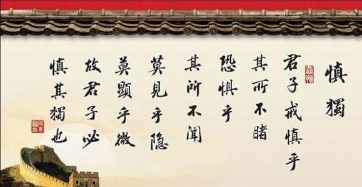 慎獨
君子戒慎乎
其所不睹
恐懼乎
其所不闻
莫見乎隐
莫顯乎微
故君子必
慎其獨也